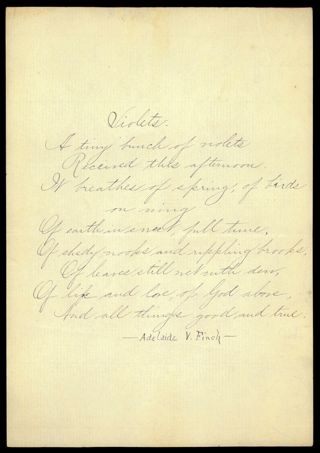 Violets.
A tiny bunch of violets
Received this afternoon.
It breathes of spring, of birds
on wing
Of earth in sweet, full tune,
Of shady nooks and rippling brooks,
Of leaves still wet with dew,
Of life and love, of God above,
And all things good and true.
— Adelaide V. Finch —